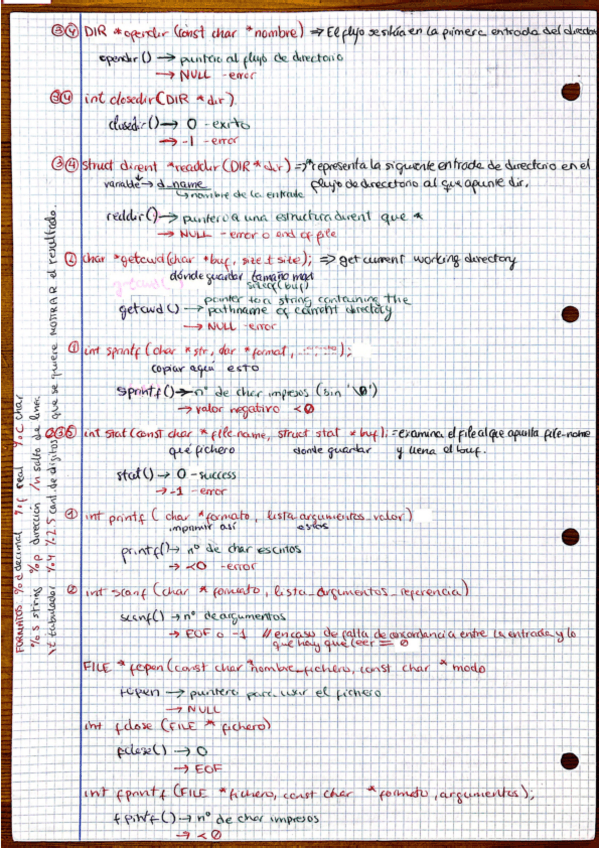 ③④ DIR *opendir (const char *nombre) ⇒ El flujo se sitúa en la primera entrada del director
opendir () → puntero al flujo de directorio
→ NULL - error
③④ int closedir (DIR *dir)
closedir () → 0 - exito
→ -1 - error
③④ struct dirent *readdir (DIR *dir) ⇒ * representa la siguiente entrada de directorio en el
variable → d_name flujo de directorio al que apunte dir.
↳ nombre de la entrada
readdir () → puntero a una estructura dirent que *
→ NULL - error o end of file
② char *getcwd (char *buf, size_t size); ⇒ get current working directory
dónde guardar tamaño max
sizeof(buf)
getcwd () → pointer to a string containing the
pathname of current directory
→ NULL - error
① int sprintf (char *str, char *format, ......);
copiar aquí esto
sprintf () → nº de char impresos (sin '\0')
→ valor negativo < 0
int stat (const char *file name, struct stat *buf); = examina el file al que apunta file-name
qué fichero donde guardar y llena el buf.
stat () → 0 - success
→ -1 - error
① int printf ( char *formato, lista_argumentos_valor)
imprimir así estos
printf () → nº de char escritos
→ <0 - error
② int scanf (char *formato, lista_argumentos_referencia)
scanf () → nº de argumentos
→ EOF o -1 // en caso de falta de concordancia entre la entrada y lo
que hay que leer = 0
FILE * fopen (const char *nombre_fichero, const char * modo
fopen → puntero para usar el fichero
→ NULL
int fclose (FILE * fichero)
fclose () → 0
→ EOF
int fprintf (FILE * fichero, const char *formato, argumentos);
fprintf () → nº de char impresos
→ < 0
FORMATOS %d decimal %f real %c char
%s strings %p dirección /n salto de línea
\t tabulador %4 %2.5 cant de dígitos que se quiere MOSTRAR el resultado.